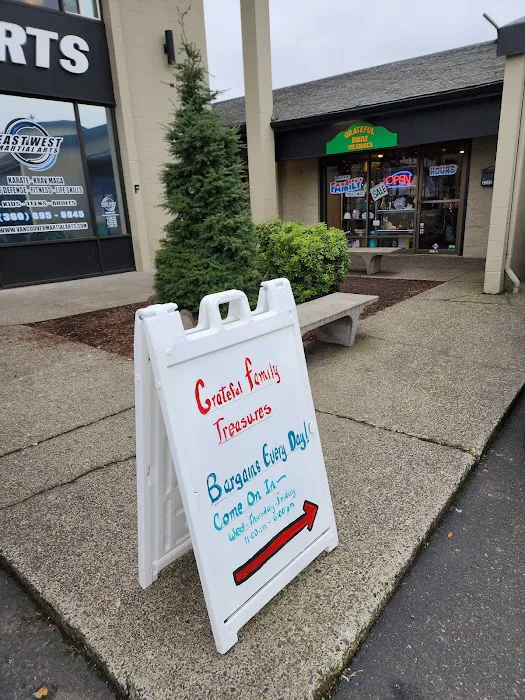 RTS
EAST WEST
MARTIAL ARTS
KARATE · KRAV MAGA
DEFENSE · FITNESS · LIFE SKILLS
KIDS · TEENS · ADULTS
(360) 695 - 6845
WWW.VANCOUVERMARTIALARTS.COM
GRATEFUL
FAMILY
TREASURES
OPEN
SALE
HOURS
Grateful Family
Treasures
Bargains Every Day!
Come On In~
Wed-Thursday-Friday
11:00am - 6:00pm